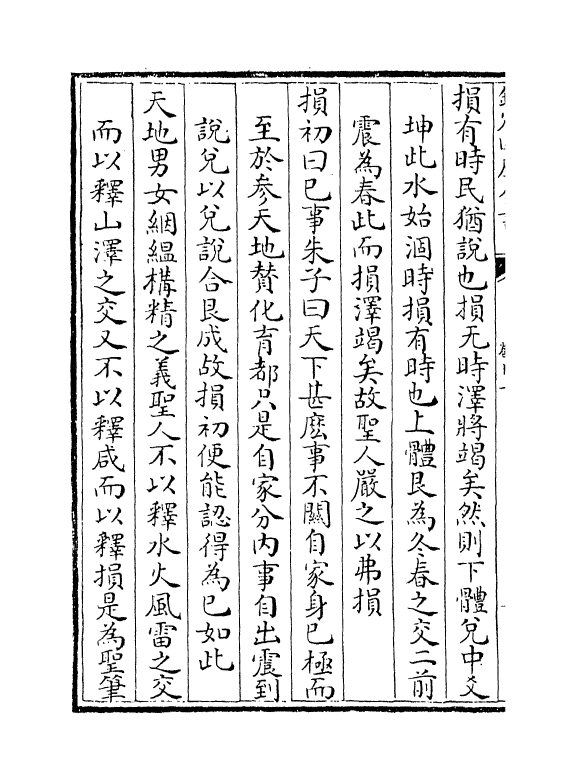 損有時民猶說也損无時澤將竭矣然則下體兌中爻
坤此水始涸時損有時也上體艮為冬春之交二前
震為春此而損澤竭矣故聖人嚴之以弗損
損初曰巳事朱子曰天下甚麽事不關自家身巳極而
至於參天地賛化育都只是自家分内事自出震到
說兌以兌說合艮成故損初便能認得為巳如此
天地男女絪縕構精之義聖人不以釋水火風雷之交
而以釋山澤之交又不以釋咸而以釋損是為聖筆